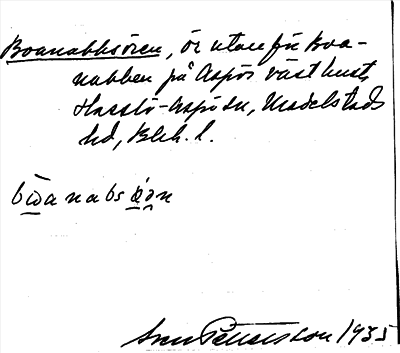 Boanabbsören, ör utanför Boa-
nabben på Aspös västkust,
Hasslö-Aspö sn, Medelstads
hd, Blek. l.
bωanabsøn
Sven Pettersson 1935